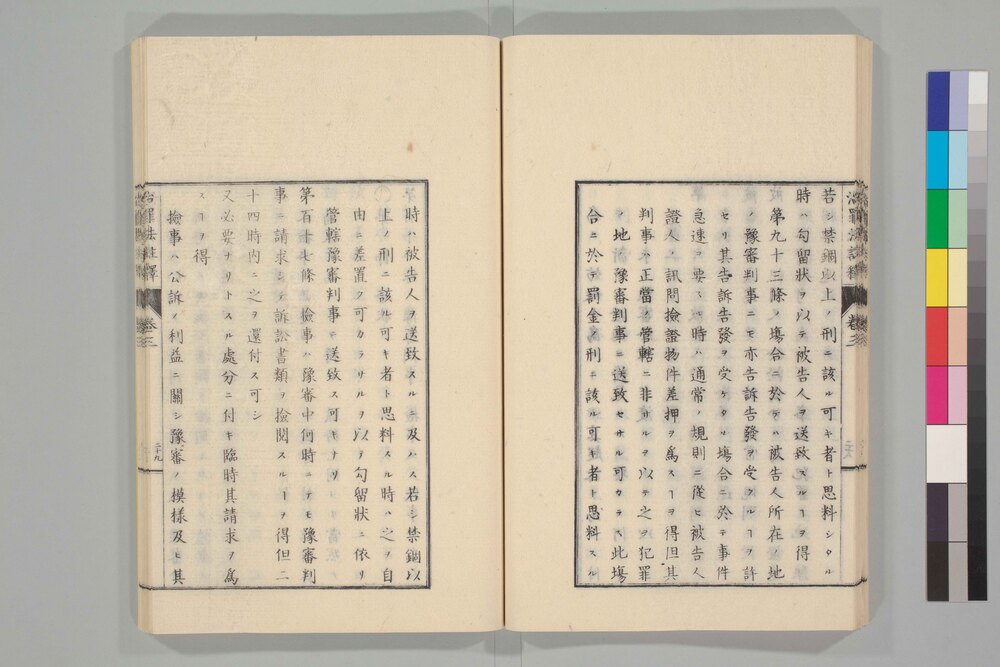 若シ禁錮以上ノ刑ニ該ル可キ者ト思料シタル
時ハ勾留狀ヲ以テ被告人ヲ送致スルヿヲ得
第九十三條ノ塲合ニ於テハ被告人所在ノ地
ノ豫審判事ニモ亦告訴告發ヲ受クルヿヲ許
セリ其告訴告發ヲ受ケタル塲合ニ於テ事件
急速ヲ要スル時ハ通常ノ規則ニ從ヒ被告人
證人ノ訊問撿證物件差押ヲ爲スヿヲ得但其
判事ハ正當ノ管轄ニ非サルヲ以テ之ヲ犯罪
ノ地ノ豫審判事ニ送致セサル可カラス此塲
合ニ於テ罰金ノ刑ニ該ル可キ者ト思料スル
時ハ被告人ヲ送致スルニ及ハス若シ禁錮以
上ノ刑ニ該ル可キ者ト思料スル時ハ之ヲ自
由ニ差置ク可カラサルヲ以テ勾留狀ニ依リ
管轄豫審判事ニ送致ス可キナリ
第百十七條 撿事ハ豫審中何時ニテモ豫審判
事ニ請求シテ訴訟書類ヲ撿閱スルヿヲ得但二
十四時內ニ之ヲ還付ス可シ
又必要ナリトスル處分ニ付キ臨時其請求ヲ爲
スヿヲ得
撿事ハ公訴ノ利益ニ關シ豫審ノ模樣及ヒ其
治罪法註釋 卷之三 二十九